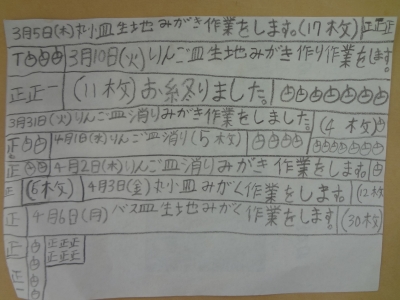 3月5日(木)丸小皿生地みがき作業をします。(17枚) 正正正
T 3月10日(火)りんご皿生地みがき作り作業をします。
正正一 (11枚)お終りました。
3月31日(火)りんご皿消りみがき作業をしました。(4枚)
正 4月1日(水)りんご皿消り(5枚)
正 4月2日(木)りんご皿消りみがき作業をします。
正 (6枚) 4月3日(金)丸小皿みがく作業をします。(12枚
正 4月6日(月)バス皿生地みがく作業をします。(30枚)
正 正正正
正 正正正